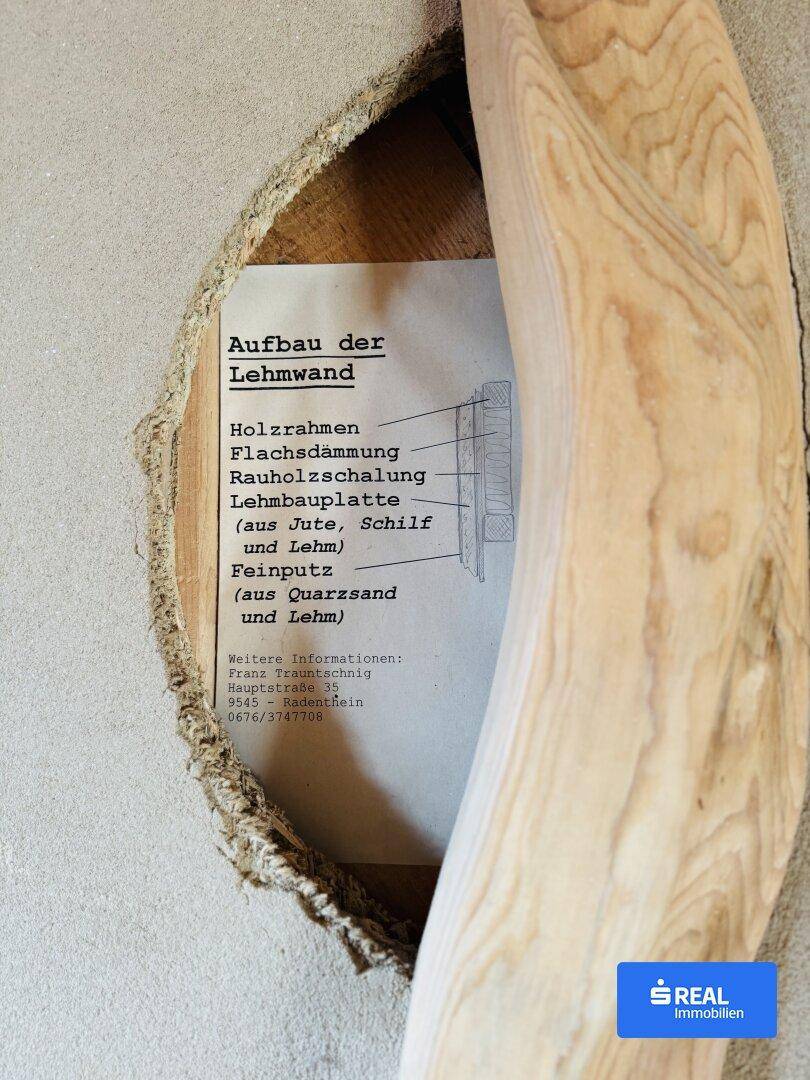 Aufbau der
Lehmwand
Holzrahmen
Flachsdämmung
Rauholzschalung
Lehmbauplatte
(aus Jute, Schilf
und Lehm)
Feinputz
(aus Quarzsand
und Lehm)
Weitere Informationen:
Franz Trauntschnig
Hauptstraße 35
9545 - Radenthein
0676/3747708
S REAL
Immobilien